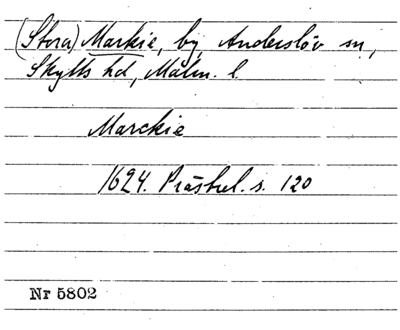 (Stora) Markie, by, Anderslöv sn,
Skytts hd, Malm. l.
Marckie
1624. Prästrel. s. 120
Nr 5802